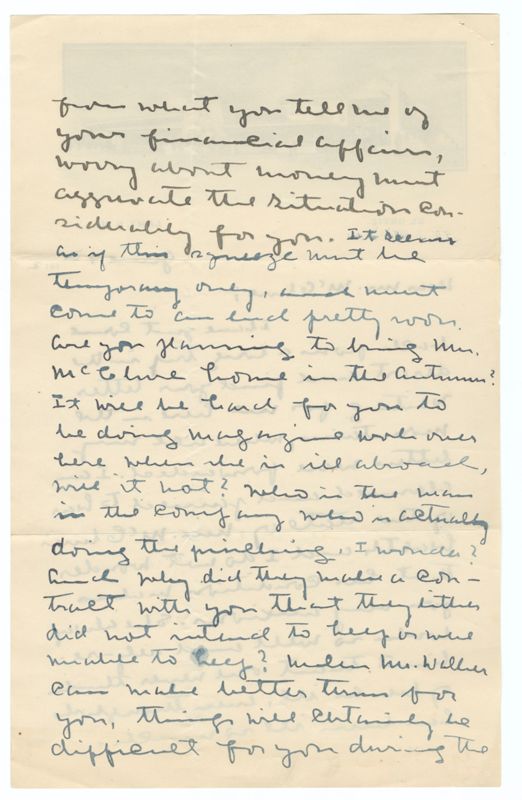 from what you tell me of
your financial affairs,
worry about money must
aggravate the situation con-
siderably for you. It seems
as if this squeeze must be
temporary only, and must
come to an end pretty soon.
Are you planning to bring Mrs.
McClure home in the Autumn?
It will be hard for you to
be doing magazine work over
here when she is ill abroad,
will it not? Who is the man
in the company who is actually
doing the pinching, I wonder?
And why did they make a con-
tract with you that they either
did not intend to keep or were
unable to keep? Unless Mr. Walker
can make better terms for
you, things will certainly be
difficult for you during the